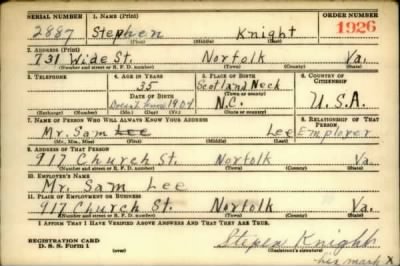 SERIAL NUMBER 1. NAME (Print) ORDER NUMBER
2887 Stephen Knight 1926
(First) (Middle) (Last)
2. ADDRESS (Print)
731 Wide St. Norfolk Va.
(Number and street or R. F. D. number) (Town) (County) (State)
3. TELEPHONE 4. AGE IN YEARS 5. PLACE OF BIRTH 6. COUNTRY OF CITIZENSHIP
35 Scotland Neck
DATE OF BIRTH (Town or county)
Doesnt know 1904 N.C. U.S.A.
(Exchange) (Number) (Mo.) (Day) (Yr.) (State or country)
7. NAME OF PERSON WHO WILL ALWAYS KNOW YOUR ADDRESS 8. RELATIONSHIP OF THAT PERSON
Mr. Sam Lee Lee Employer
(Mr., Mrs., Miss) (First) (Middle) (Last)
9. ADDRESS OF THAT PERSON
917 Church St. Norfolk Va.
(Number and street or R. F. D. number) (Town) (County) (State)
10. EMPLOYER'S NAME
Mr. Sam Lee
11. PLACE OF EMPLOYMENT OR BUSINESS
917 Church St. Norfolk Va.
(Number and street or R. F. D. number) (Town) (County) (State)
I AFFIRM THAT I HAVE VERIFIED ABOVE ANSWERS AND THAT THEY ARE TRUE.
REGISTRATION CARD Stepen Knight
D. S. S. Form 1 (over) (Registrant's signature)
his mark X